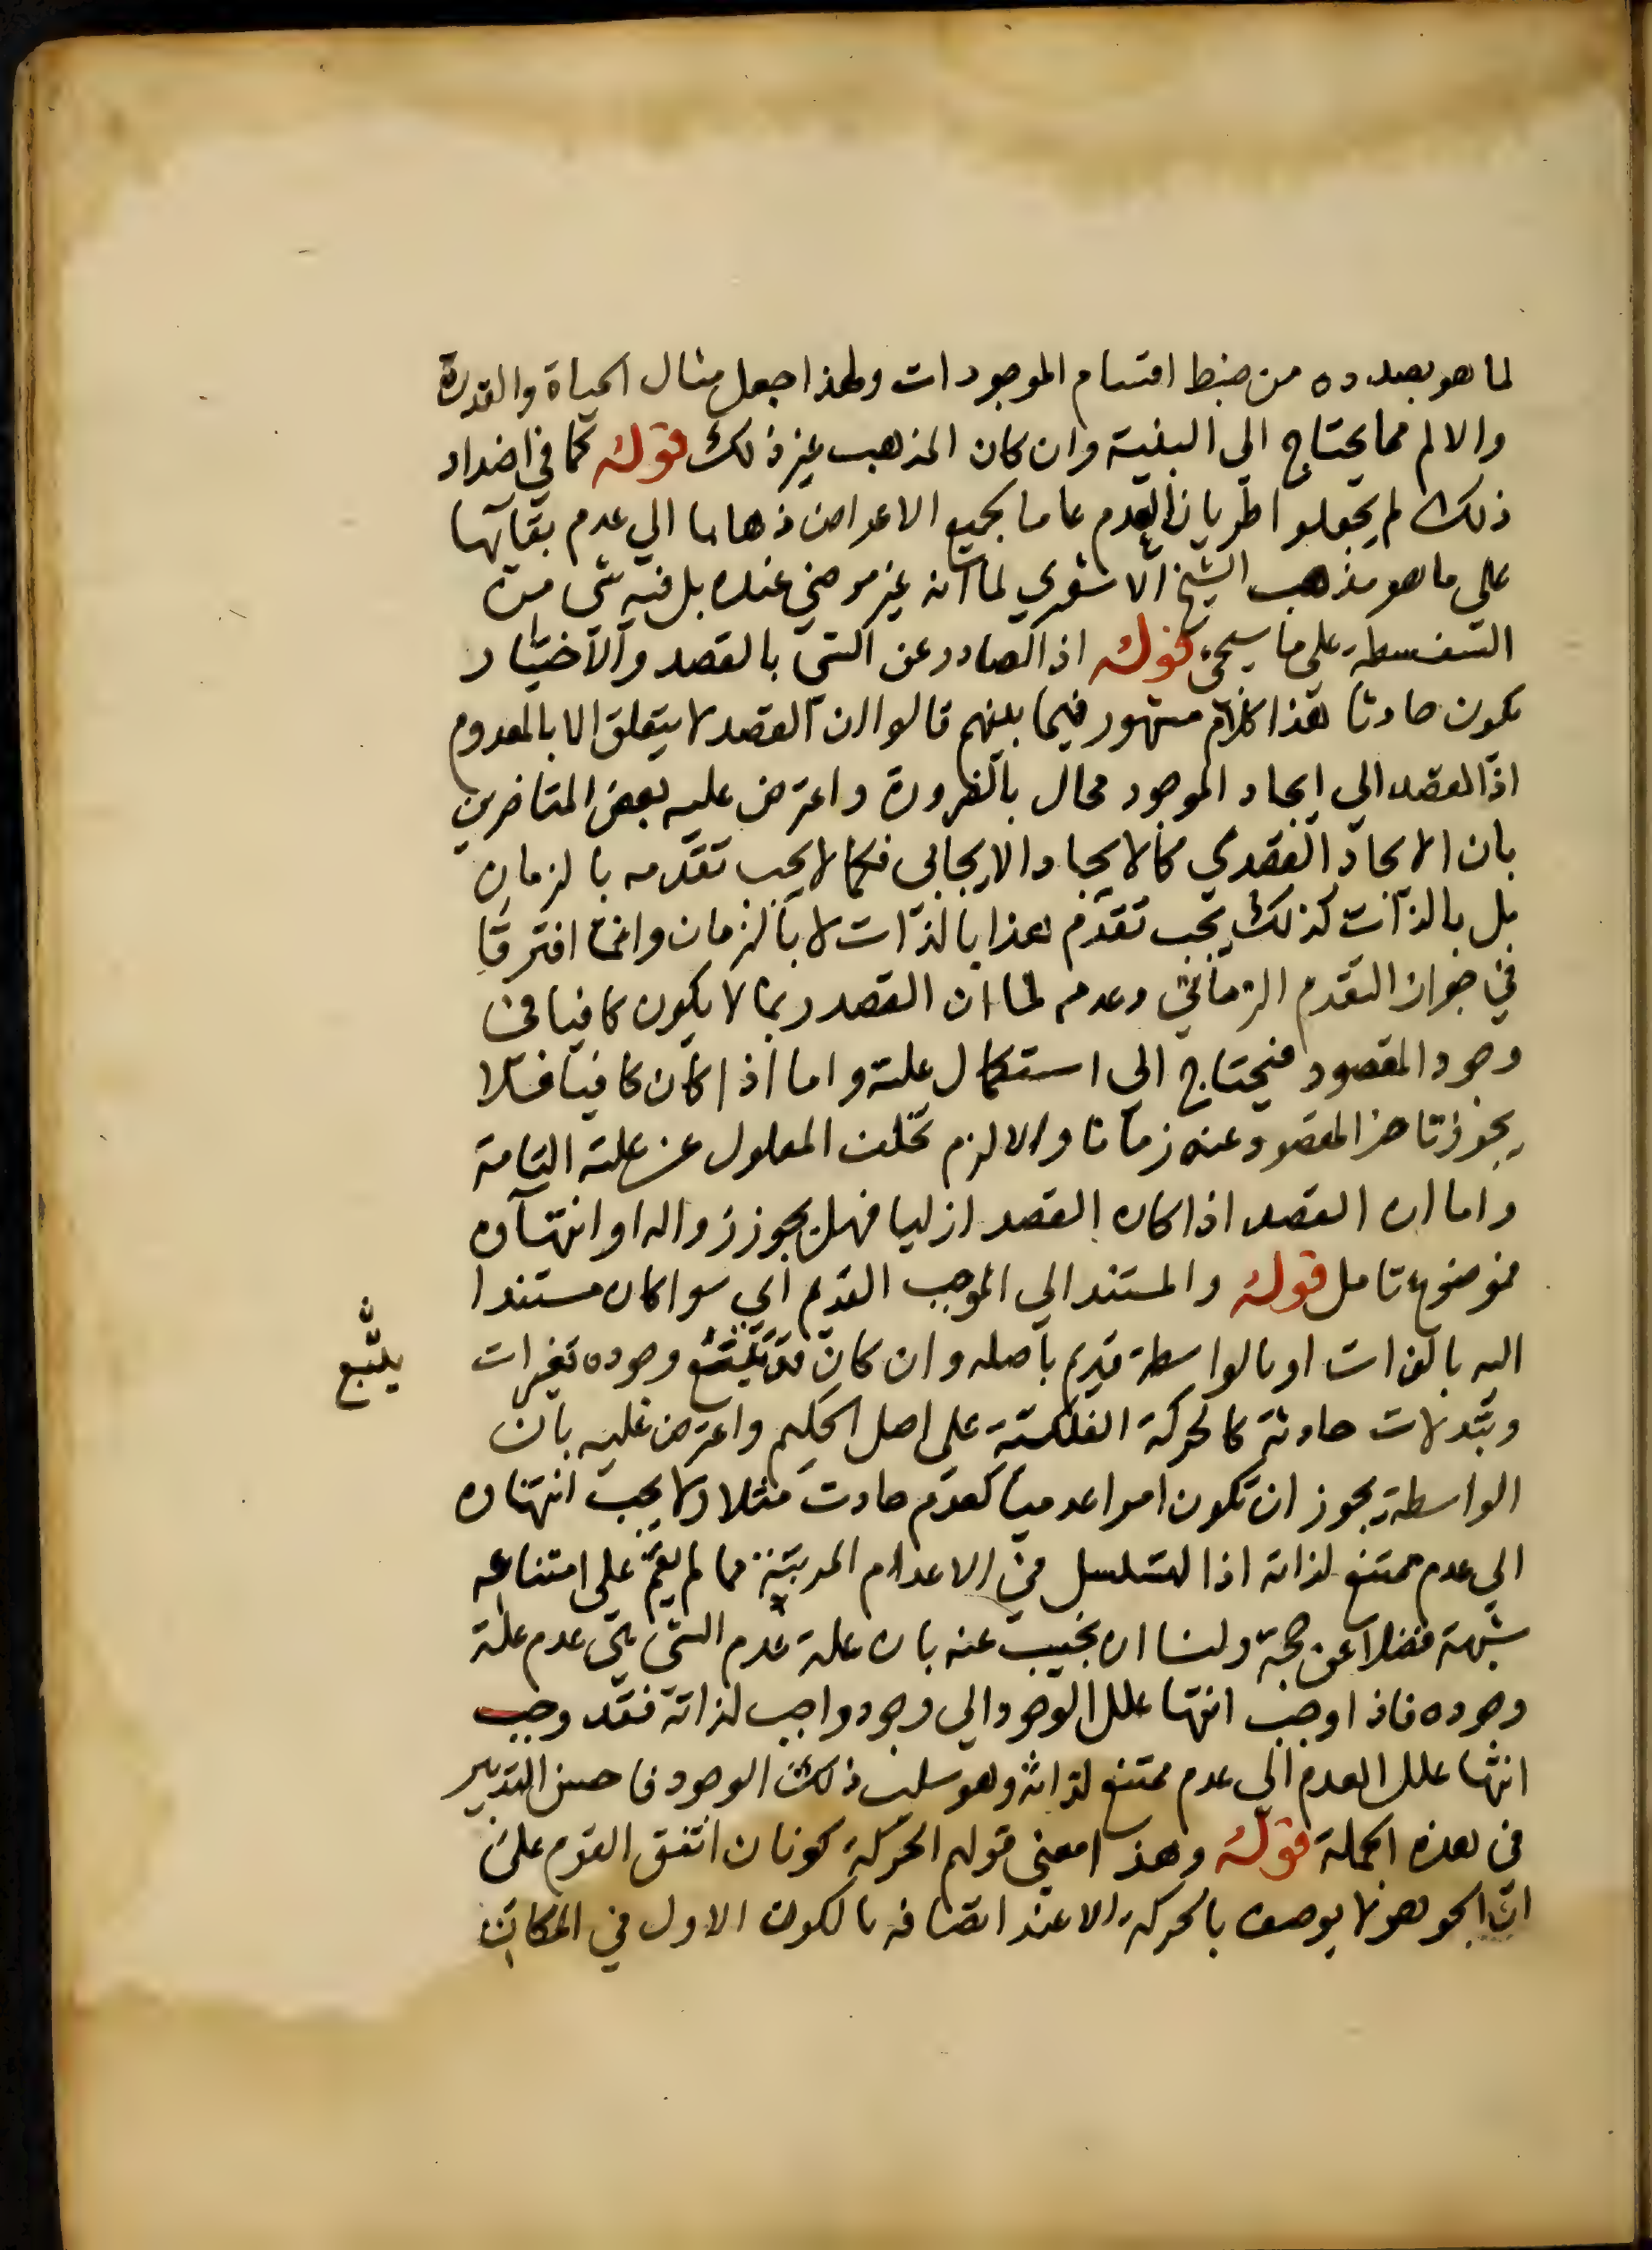 لما هو بصدده من ضبط اقسام الموجودات ولهذا جعل مثال الحياة والقدرة
والالم مما يحتاج الي البنية وان كان المذهب غير ذلك قوله كما في اضداد
ذلك لم يجعلوا طريان العدم عاما بجميع الاعراض ذهابا الي عدم بقآئها
علي ما هو مذهب الشيخ الاشعري لما انه غير مرضي عنده بل فيه شي من
السفسطة علي ما سيجئ قوله اذ الصادر عن الشي بالقصد والاختيار
يكون حادثا هذا كلام مشهور فيما بينهم قالوا ان القصد لا يتعلق الا بالمعدوم
اذ القصد الي ايجاد الموجود محال بالضرورة واعترض عليه بعض المتاخرين
بان الايجاد القصدي كالايجاد الايجابي فكما لا يجب تقدمه بالزمان
بل بالذات كذلك يجب تقدم هذا بالذات لا بالزمان وانما افترقا
في جواز التقدم الزماني وعدمه لما ان القصد ربما لا يكون كافيا في
وجود المقصود فيحتاج الي استكمال علته واما اذا كان كافيا فلا
يجوز تاخر المقصود عنه زمانا والا لزم تخلف المعلول عن علته التامة
واما ان القصد اذا كان القصد ازليا فهل يجوز زواله او انتهآؤه
فموضع تامل قوله والمستند الي الموجب القديم اي سوا كان مستندا
اليه بالذات او بالواسطة قديم باصله وان كان قد يتبع وجوده تغيرات
يتبع
وتبدلات حادثة كالحركة الفلكية علي اصل الحكيم واعترض عليه بان
الواسطة يجوز ان تكون امرا عدميا كعدم حادث مثلا ولا يجب انتهاؤه
الي عدم ممتنع لذاته اذ التسلسل في الاعدام المرتبة مما لم يقم علي امتناعه
شبهة فضلا عن حجة ولنا ان نجيب عنه بان علة عدم الشي هي عدم علة
وجوده فاذا وجب انتها علل الوجود الي وجود واجب لذاته فقد وجب
انتها علل العدم الي عدم ممتنع لذاته وهو سلب ذلك الوجود فاحسن التدبير
في هذه الجملة قوله وهذا معني قولهم الحركة كونان اتفق القوم علي
ان الجوهر لا يوصف بالحركة الا عند اتصافه بالكون الاول في المكان